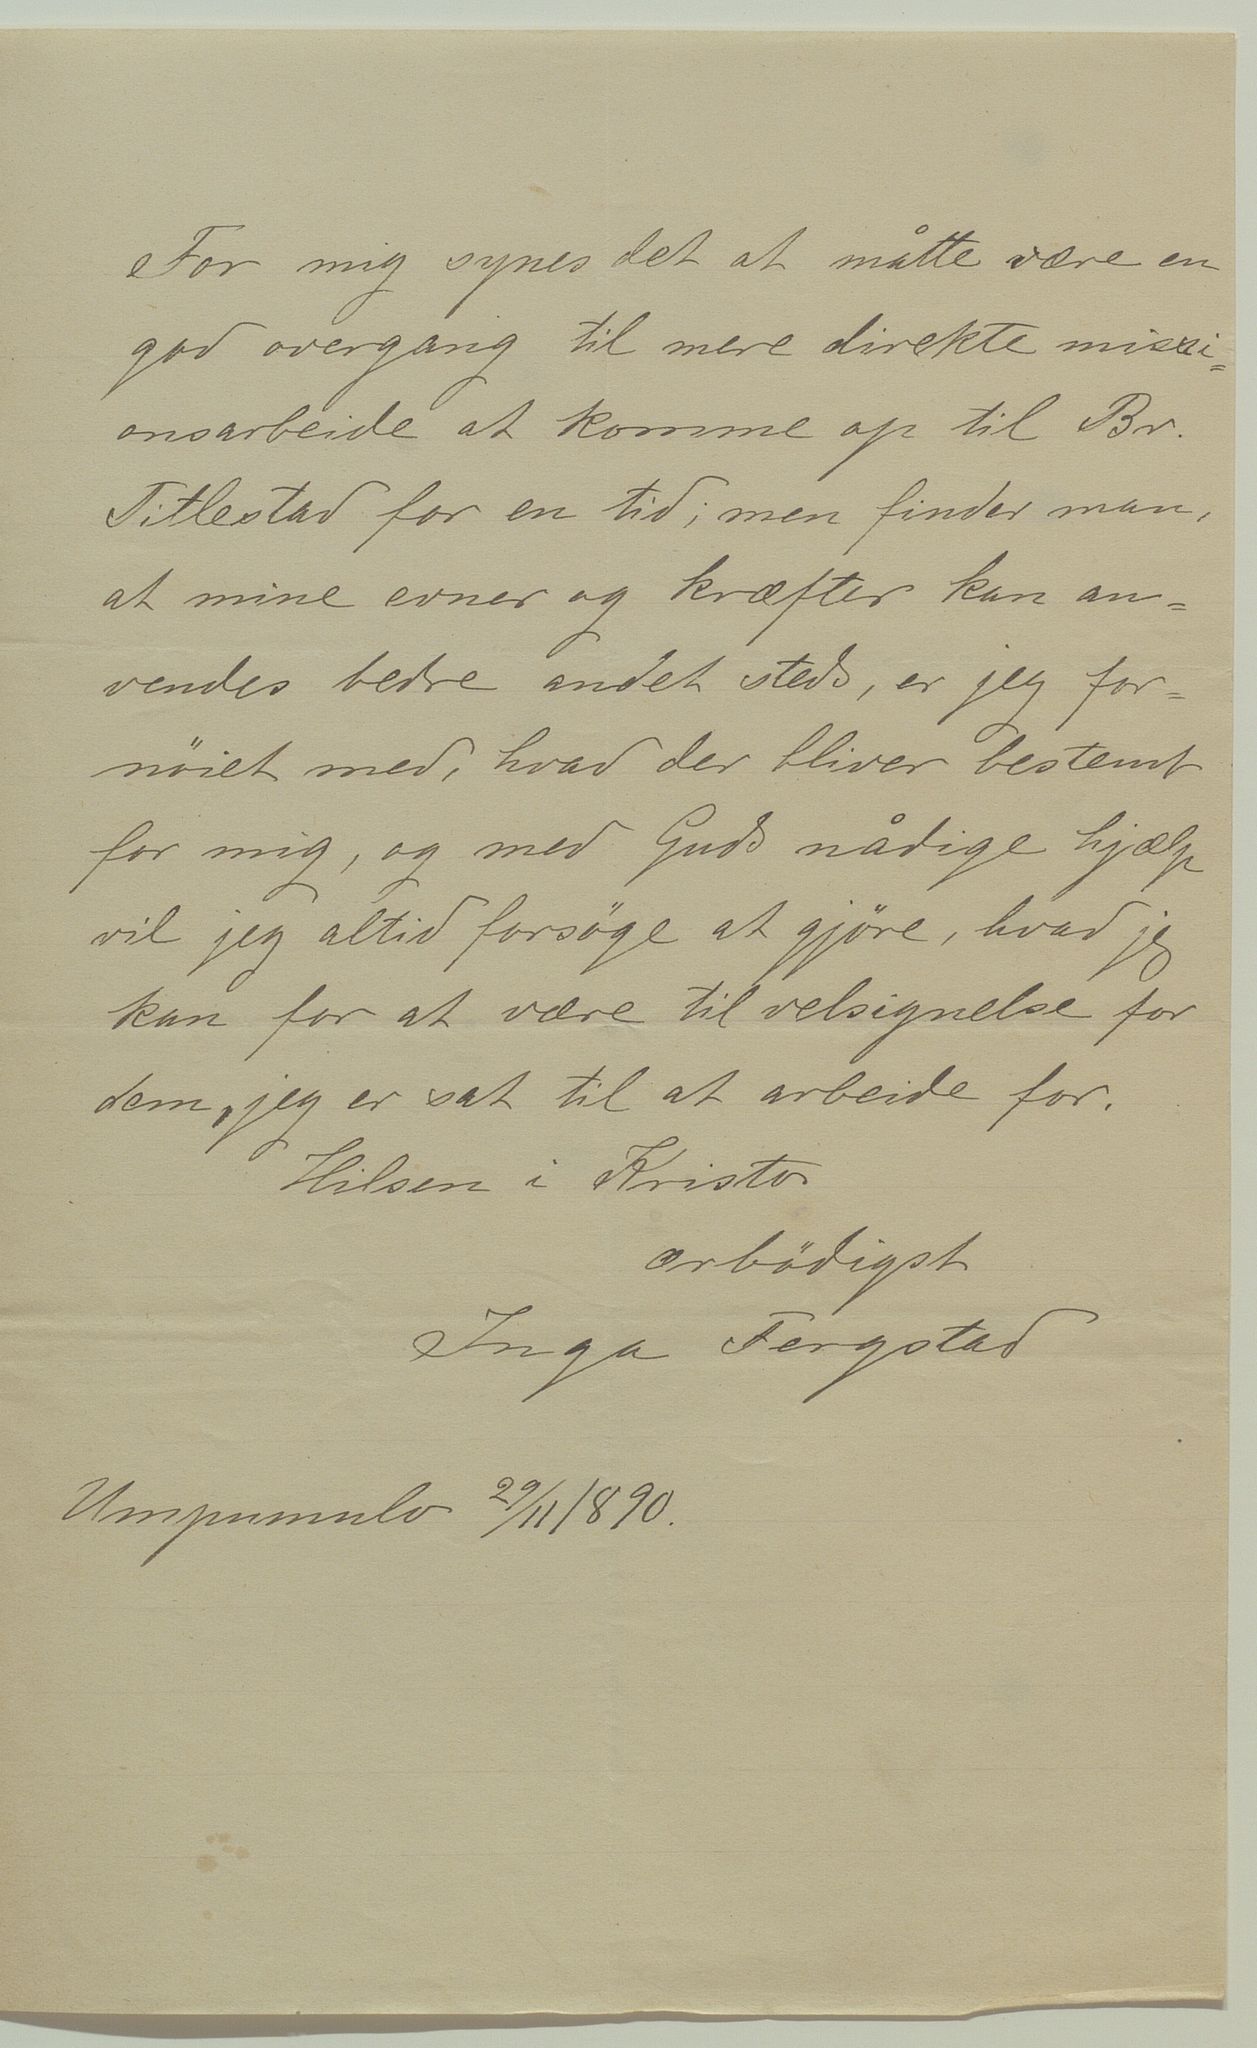 For mig synes det at måtte være en
god overgang til mere direkte missi=
onsarbeide at komme op til Br.
Titlestad for en tid; men finder man,
at mine evner og kræfter kan an=
vendes bedre andet steds, er jeg for=
nöiet med, hvad der bliver bestemt
for mig, og med Guds nådige hjælp
vil jeg altid forsöge at gjöre, hvad jeg
kan for at være til velsignelse for
dem, jeg er sat til at arbeide for.
Hilsen i Kristo
ærbödigst
Inga Fergstad
Umpumulo 29/11 1890.